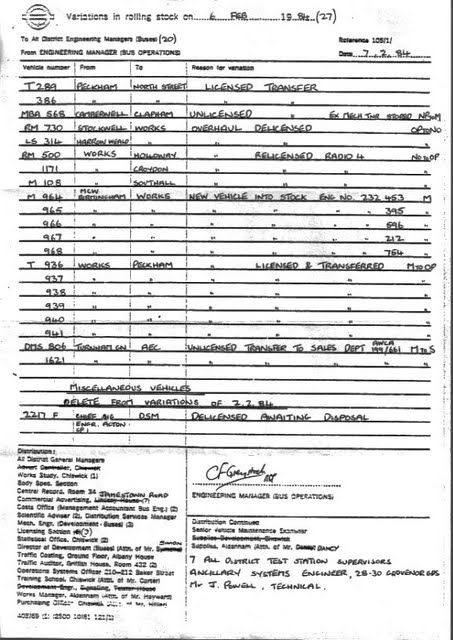 Variations in rolling stock on 6 FEB 1984 (27)
To All District Engineering Managers (Buses) (20) Reference 105/1/
From ENGINEERING MANAGER (BUS OPERATIONS) Date 7.2.84
Vehicle number From To Reason for variation
T 289 PECKHAM NORTH STREET LICENSED TRANSFER
386 " " " "
MBA 568 CAMBERWELL CLAPHAM UNLICENSED " EX MECH THR STORED
RM 730 STOCKWELL WORKS OVERHAUL DELICENSED OP TO NO
LS 314 HARROW WEALD " " " "
RM 500 WORKS HOLLOWAY " RELICENSED RADIO 4 NO TO OP
1171 " CROYDON " "
M 108 " SOUTHALL " "
M 964 MCW BIRMINGHAM WORKS NEW VEHICLE INTO STOCK ENG NO. 232 453 M
965 " " " " 395 "
966 " " " " 596 "
967 " " " " 212 "
968 " " " " 754 "
T 936 WORKS PECKHAM " LICENSED & TRANSFERRED M TO OP
937 " " " " "
938 " " " " "
939 " " " " "
940 " " " " "
941 " " " " "
DMS 806 TURNHAM GN AEC UNLICENSED TRANSFER TO SALES DEPT 199/661 M TO S
1621 " " " " "
MISCELLANEOUS VEHICLES
DELETE FROM VARIATIONS OF 2.2.84
2217 F CHIEF DSM DELICENSED AWAITING DISPOSAL
ENGR. ACTON
Distribution:
All District General Managers
Advert Controller, Chiswick
Works Study, Chiswick (1)
Body Spec. Section
Central Record, Room 34 JAMESTOWN ROAD
Commercial Advertising, (7)
Costs Office (Management Accountant Bus Eng.) (2)
Scientific Adviser (2), Distribution Services Manager
Mech. Engr. (Development - Buses) (3)
Licensing Section (3)
Statistical Office, Chiswick (2)
Director of Development (Buses) (Attn. of Mr. SIMON)
Traffic Costing, Ground Floor, Albany House
Traffic Auditor, Griffith House, Room 432 (2)
Operations Systems Officer 210-212 Baker Street
Training School, Chiswick (Attn. of Mr. Carter)
Development Engr. Signalling,
Works Manager, Aldenham (Attn. of Mr. Hayward)
Purchasing Officer Chiswick (Attn. of Mr.
ENGINEERING MANAGER (BUS OPERATIONS)
Distribution Continued
Senior Vehicle Maintenance Examiner
Supplies Development, Chiswick
Supplies, Aldenham (Attn. of Mr. DANCY
7 ALL DISTRICT TEST STATION SUPERVISORS
ANCILLARY SYSTEMS ENGINEER, 28-30 GROVENOR GDS
MR J. POWELL, TECHNICAL.